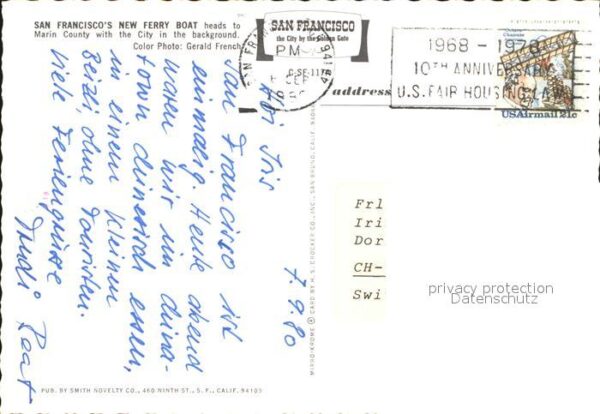 SAN FRANCISCO'S NEW FERRY BOAT heads to
Marin County with the City in the background.
Color Photo: Gerald French
SAN FRANCISCO
the City by the Golden Gate
PM
1968 - 1978
10TH ANNIVERSARY
U.S. FAIR HOUSING LAW
USAirmail 21c
address
7.9.80
Iris
San Francisco ist
einmalig. Heute abend
waren wir in China-
town chinesisch essen,
in einem kleinen
Beizli, ohne Touristen.
Viele Feriengrüsse
Trudi Beat
MIRRO-KROME ® CARD BY H. S. CROCKER CO., INC., SAN BRUNO, CALIF.
Frl
Iri
Dor
CH-
Swi
privacy protection
Datenschutz
PUB. BY SMITH NOVELTY CO., 460 NINTH ST., S. F., CALIF. 94103